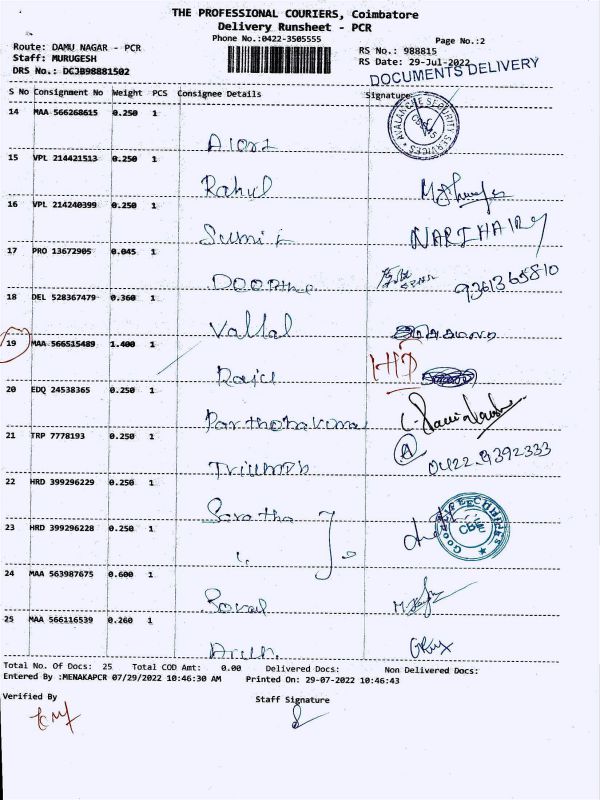 THE PROFESSIONAL COURIERS, Coimbatore
Delivery Runsheet - PCR
Phone No.:0422-3505555
Page No.:2
Route: DAMU NAGAR - PCR
RS No.: 988815
Staff: MURUGESH
RS Date: 29-Jul-2022
DRS No.: DCJB98881502
DOCUMENTS DELIVERY
S No Consignment No Weight PCS Consignee Details Signature
14 MAA 566268615 0.250 1
AVALANCHE SECURITY SERVICES
15 VPL 214421513 0.250 1
Rahul
16 VPL 214240399 0.250 1
Sumi
NARIHARY
17 PRO 13672905 0.045 1
9361365810
18 DEL 528367479 0.360 1
Vallal
19 MAA 566515489 1.400 1
Raju
20 EDQ 24538365 0.250 1
21 TRP 7778193 0.250 1
A
Triumph
0422-4392333
22 HRD 399296229 0.250 1
Saratha
CBE
23 HRD 399296228 0.250 1
24 MAA 563987675 0.600 1
25 MAA 566116539 0.260 1
Arun
Total No. Of Docs: 25 Total COD Amt: 0.00 Delivered Docs: Non Delivered Docs:
Entered By :MENAKAPCR 07/29/2022 10:46:30 AM Printed On: 29-07-2022 10:46:43
Verified By
Staff Signature